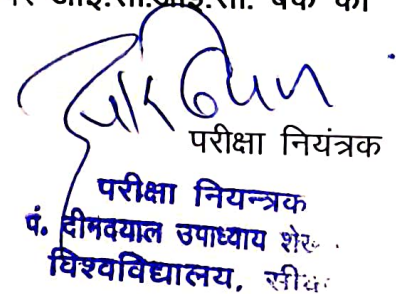 आई.सी.आई.सी. बैंक को
परीक्षा नियंत्रक
परीक्षा नियन्त्रक
पं. दीनदयाल उपाध्याय शेखा
विश्वविद्यालय, सीकर